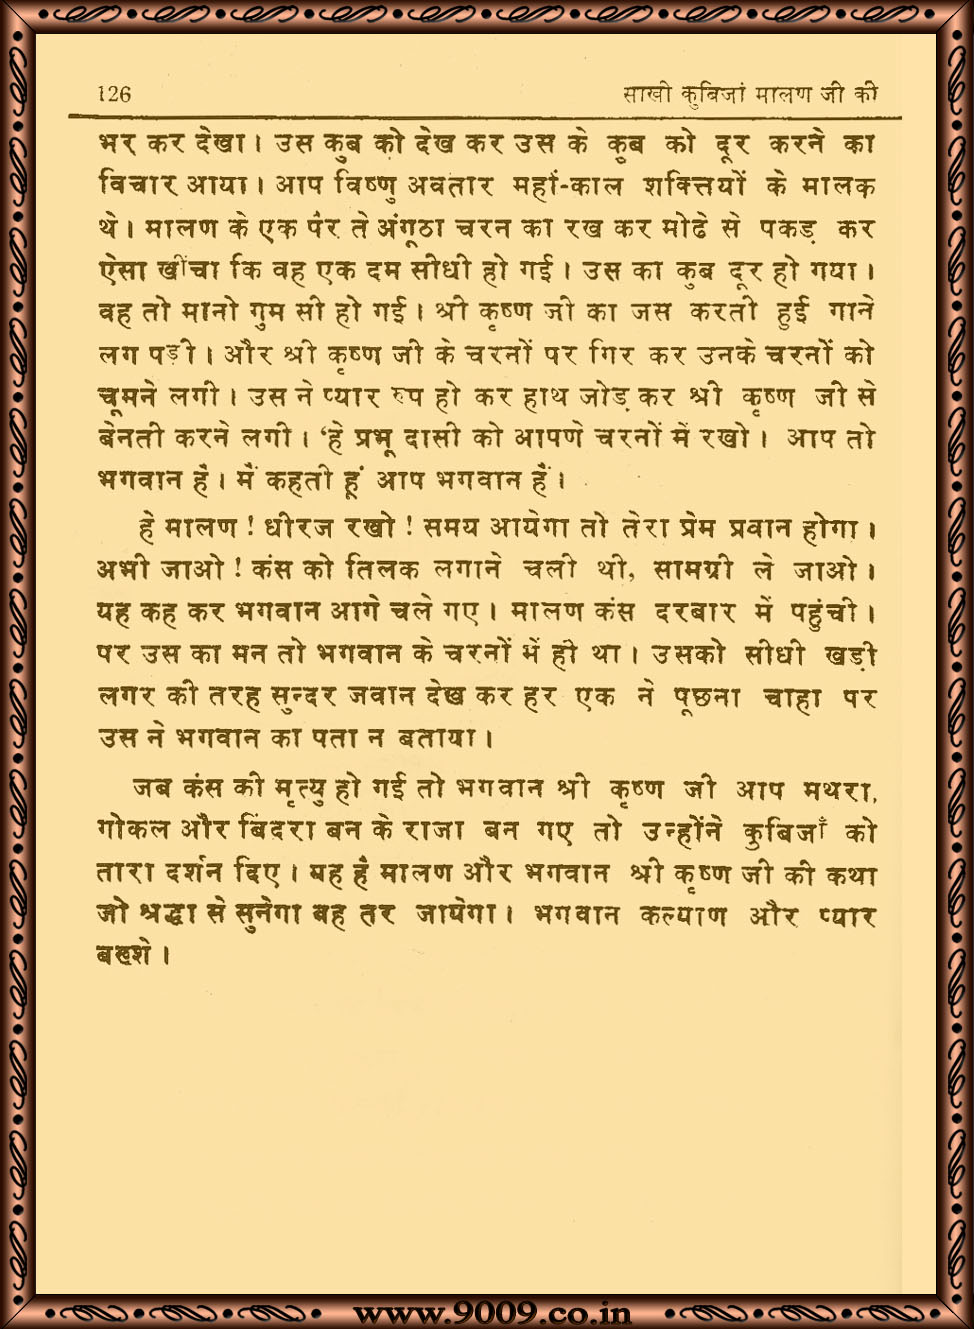 126 साखी कुबिजां मालण जी की
भर कर देखा। उस कुब को देख कर उस के कुब को दूर करने का
विचार आया। आप विष्णु अवतार महां-काल शक्तियों के मालक
थे। मालण के एक पैर ते अंगूठा चरन का रख कर मोढे से पकड़ कर
ऐसा खींचा कि वह एक दम सीधी हो गई। उस का कुब दूर हो गया।
वह तो मानो गुम सी हो गई। श्री कृष्ण जी का जस करती हुई गाने
लग पड़ी। और श्री कृष्ण जी के चरनों पर गिर कर उनके चरनों को
चूमने लगी। उस ने प्यार रुप हो कर हाथ जोड़ कर श्री कृष्ण जी से
बेनती करने लगी। ‘हे प्रभू दासी को आपणे चरनों में रखो। आप तो
भगवान हैं। मैं कहती हूं आप भगवान हैं।
हे मालण! धीरज रखो! समय आयेगा तो तेरा प्रेम प्रवान होगा।
अभी जाओ! कंस को तिलक लगाने चली थी, सामग्री ले जाओ।
यह कह कर भगवान आगे चले गए। मालण कंस दरबार में पहुंची।
पर उस का मन तो भगवान के चरनों में ही था। उसको सीधी खड़ी
लगर की तरह सुन्दर जवान देख कर हर एक ने पूछना चाहा पर
उस ने भगवान का पता न बताया।
जब कंस की मृत्यु हो गई तो भगवान श्री कृष्ण जी आप मथरा,
गोकल और बिंदरा बन के राजा बन गए तो उन्होंने कुबिजाँ को
तारा दर्शन दिए। यह है मालण और भगवान श्री कृष्ण जी की कथा
जो श्रद्धा से सुनेगा वह तर जायेगा। भगवान कल्याण और प्यार
बख्शे।
www.9009.co.in